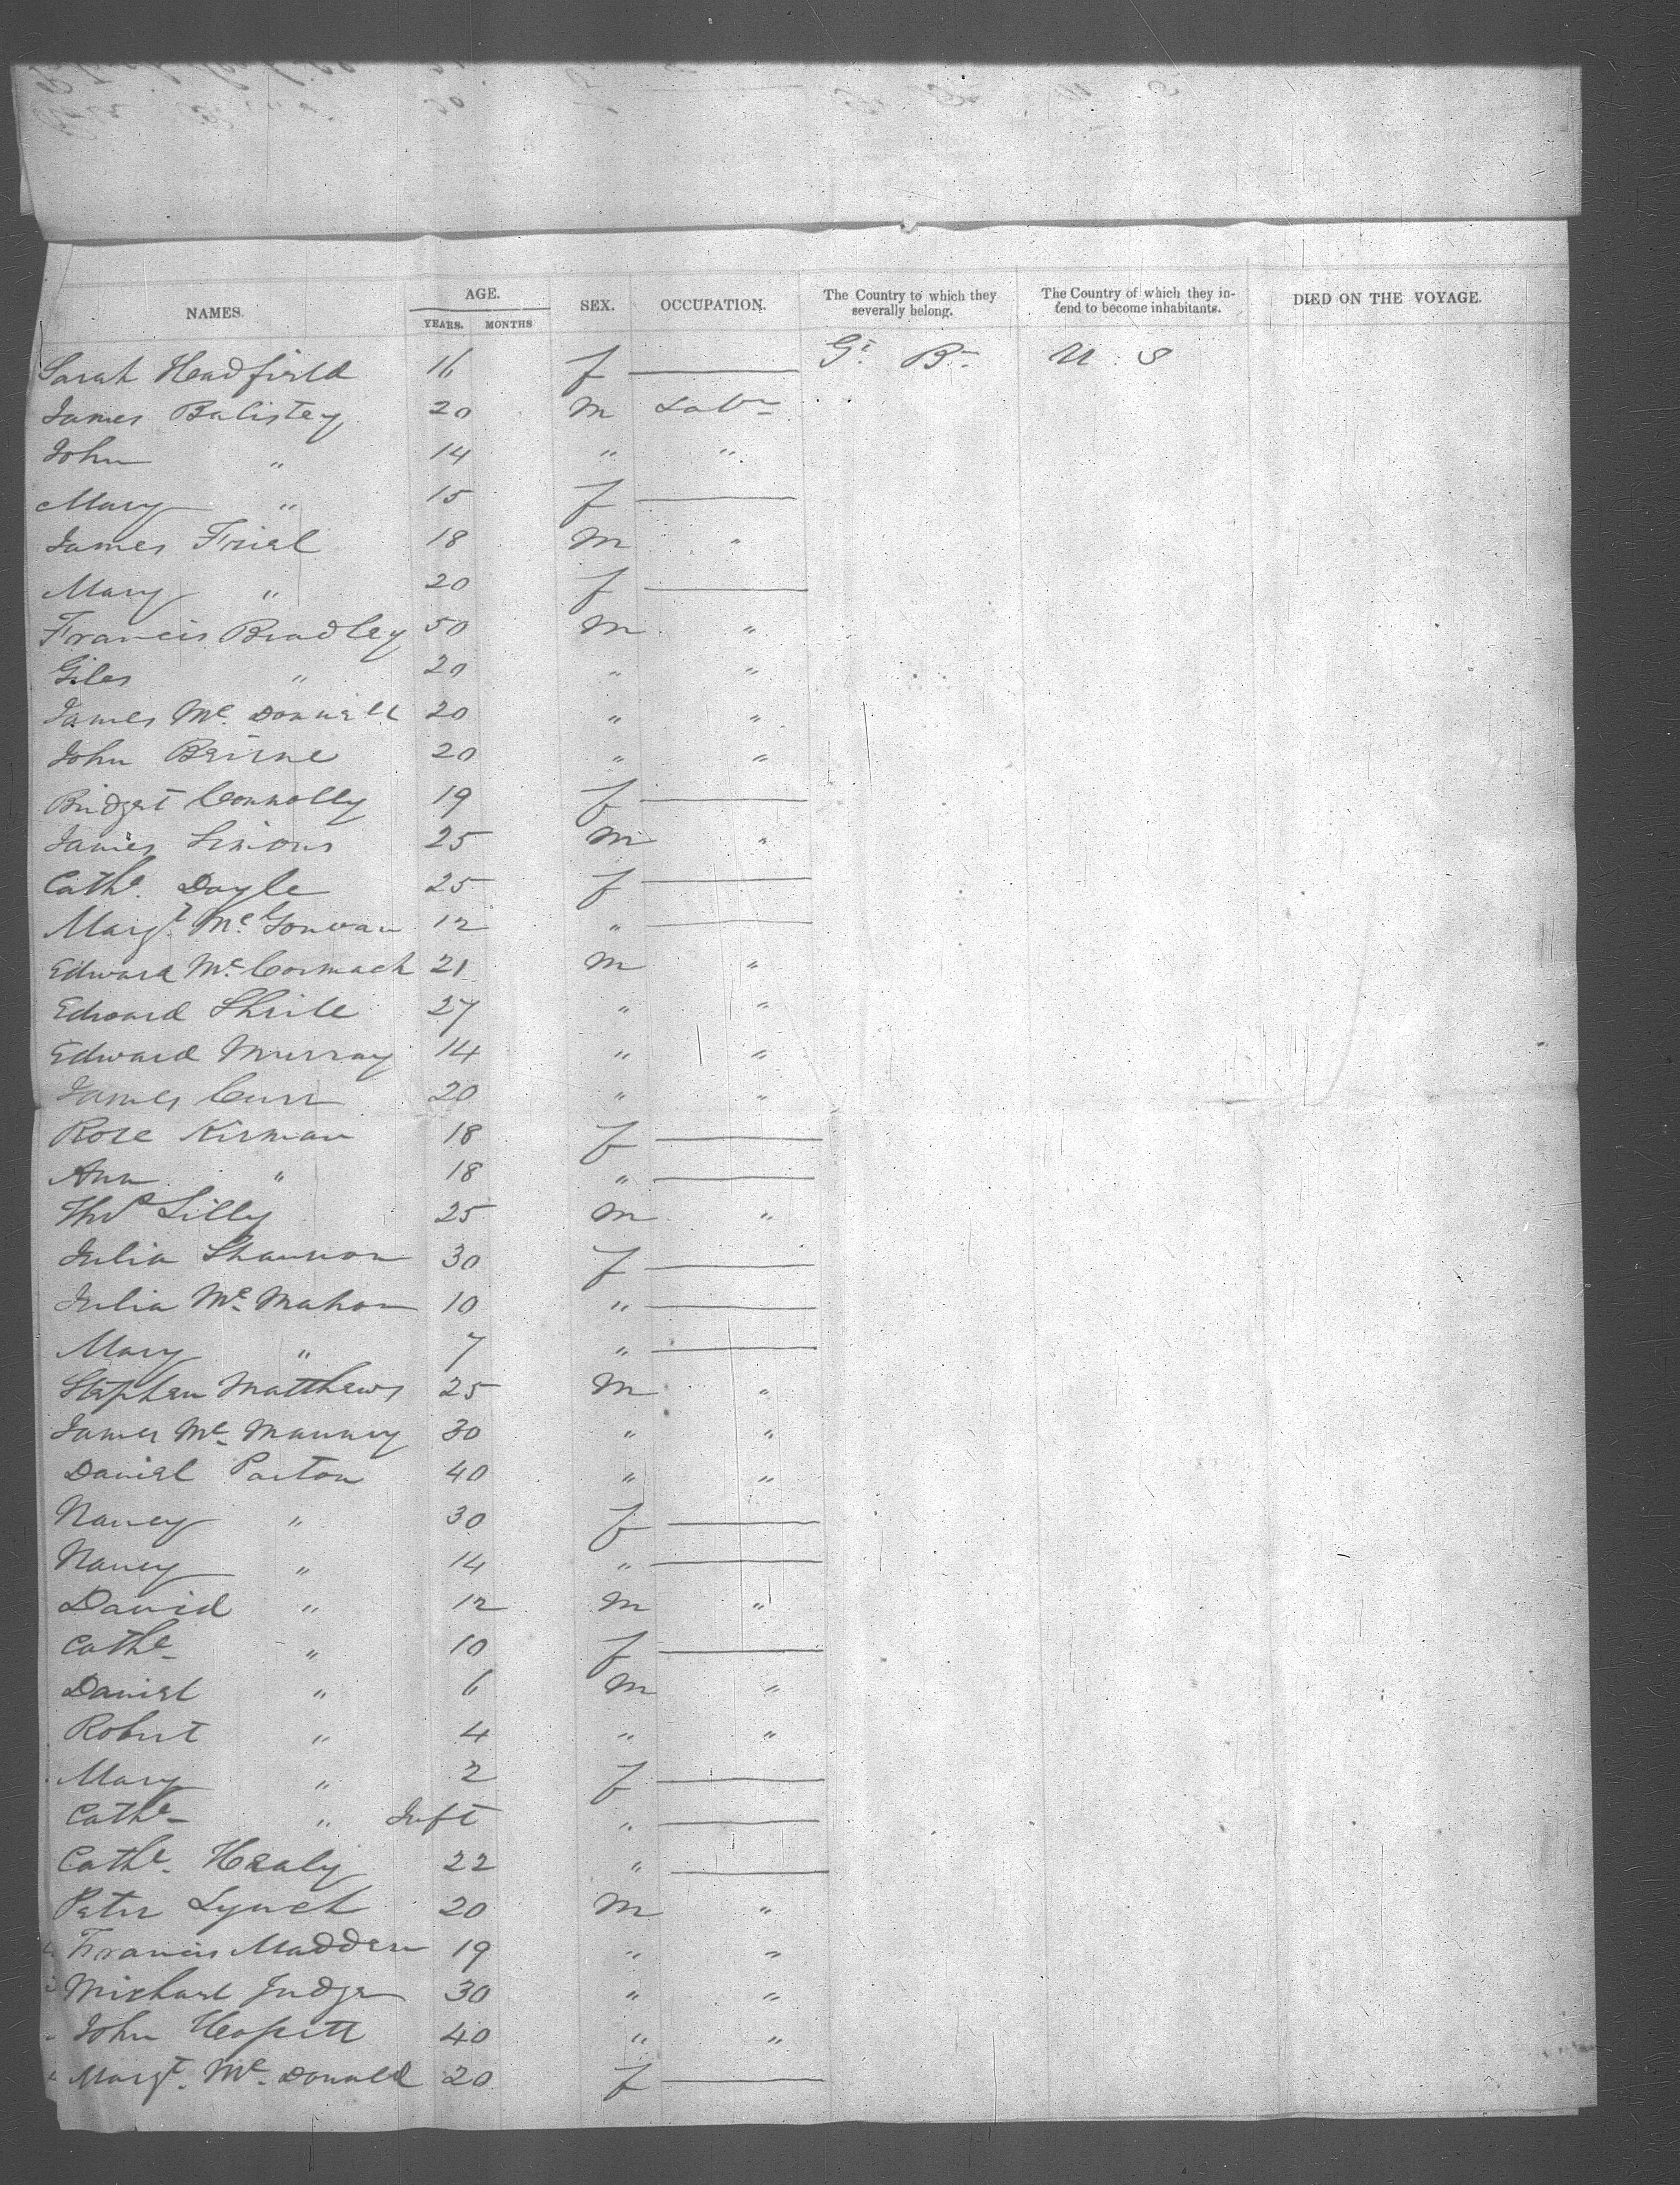 NAMES. AGE. SEX. OCCUPATION. The Country to which they severally belong. The Country of which they intend to become inhabitants. DIED ON THE VOYAGE.
YEARS. MONTHS
Sarah Headfield 16 f —— Gt. Bn. U S
James Balistey 20 m Labr
John " 14 " "
Mary " 15 f ——
James Friel 18 m "
Mary " 20 f ——
Francis Bradley 50 m "
Giles " 20 " "
James Mc. Donnell 20 " "
John Beirne 20 " "
Bridget Connolly 19 f ——
James Simons 25 m "
Cathe. Doyle 25 f ——
Margt. Mc. Gowan 12 " ——
Edward Mc. Cormack 21 m "
Edward Shiile 27 " "
Edward Murray 14 " "
James Curr 20 " "
Rose Kirman 18 f ——
Ann " 18 " ——
Thos Lilly 25 m "
Julia Shannon 30 f ——
Julia Mc. Mahon 10 " ——
Mary " 7 " ——
Stephen Matthews 25 m "
James Mc. Manney 30 " "
Daniel Parton 40 " "
Nancy " 30 f ——
Nancy " 14 " ——
David " 12 m "
Cathe " 10 f ——
Daniel " 6 m "
Robert " 4 " "
Mary " 2 f ——
Cathe " Inft " ——
Cathe. Healy 22 " ——
Peter Lynch 20 m "
Francis Madden 19 " "
Michael Judge 30 " "
John 40 " "
Margt. Mc. Donald 20 f ——